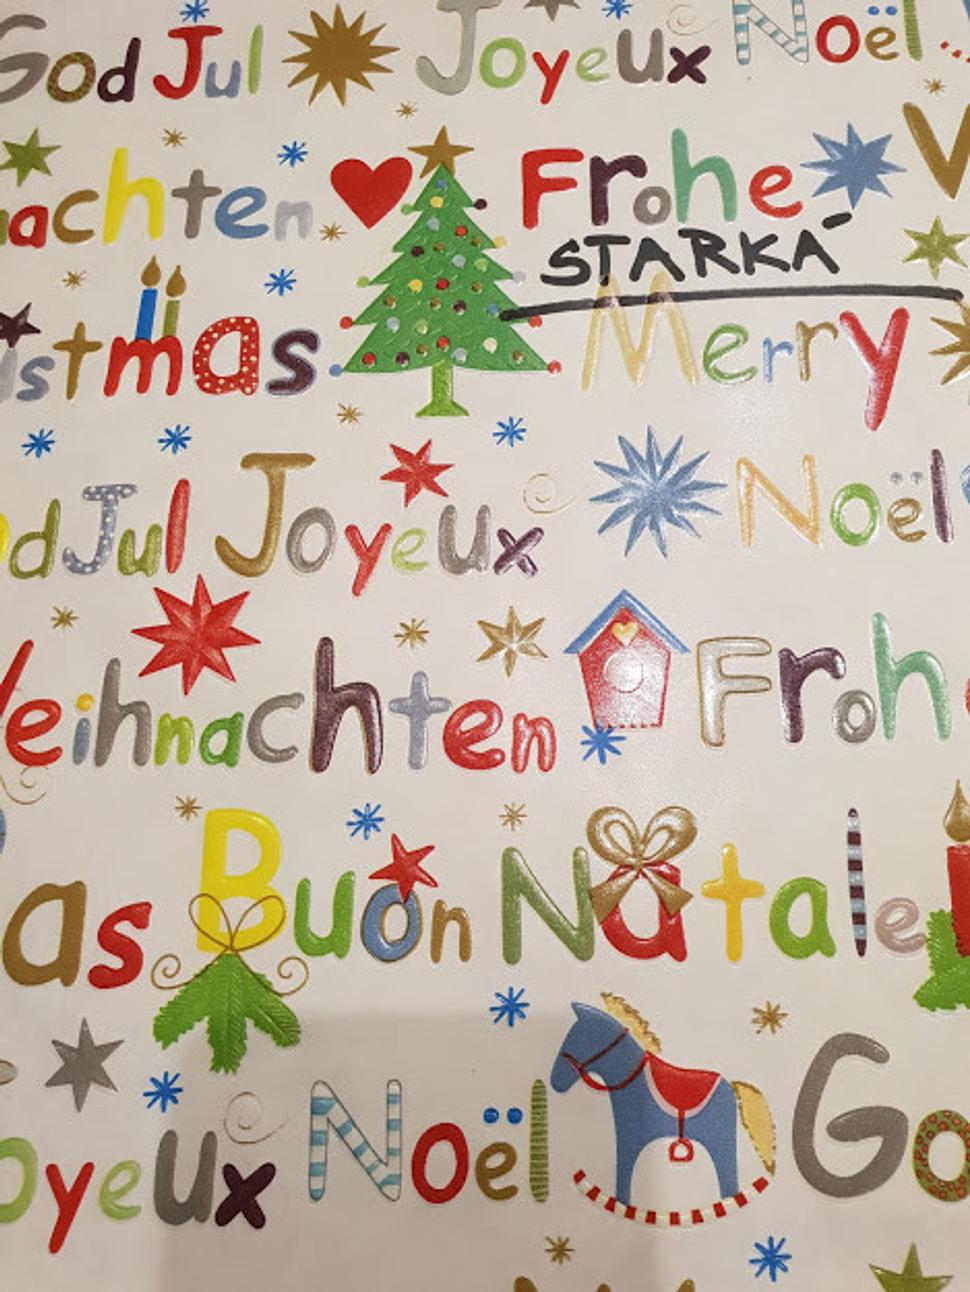 God Jul Joyeux Noël
achten Frohe
STARKÁ
istmas Merry
dJul Joyeux Noël
Weihnachten Froh
as Buon Natale
oyeux Noël Go